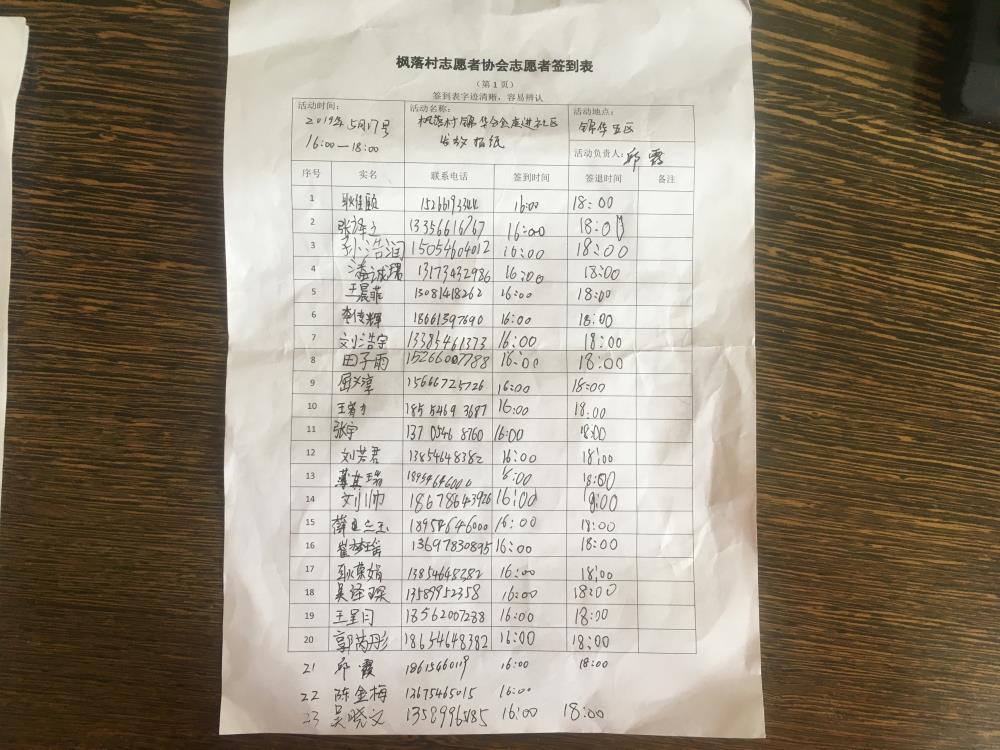 枫落村志愿者协会志愿者签到表
（第1页）
签到表字迹清晰，容易辨认
活动时间： 2019年5月17号 16:00—18:00
活动名称： 枫落村锦华 走进社区
发放报纸
活动地点： 锦华五区
活动负责人： 邱霞
序号 实名 联系电话 签到时间 签退时间 备注
1 耿佳颐 16:00 18:00
2 张泽之 16:00 18:00
3 孙浩润 15054604012 16:00 18:00
4 潘诚瑞 13173432986 16:00 18:00
5 王晨菲 13081418262 16:00 18:00
6 李传辉 18661397690 16:00 18:00
7 刘浩宇 13385461373 16:00 18:00
8 田子雨 15266007788 16:00 18:00
9 15666725726 16:00 18:00
10 18554693687 16:00 18:00
11 张宇 13705468760 16:00 18:00
12 刘芳君 13854648382 16:00 18:00
13 18954646000 6:00 18:00
14 刘帅 18678643926 16:00 18:00
15 18954646000 16:00 18:00
16 崔梦瑶 13697830895 16:00 18:00
17 荣娟 13854648382 16:00 18:00
18 吴泽琛 13589952358 16:00 18:00
19 王星闩 13562007238 16:00 18:00
20 郭芮彤 18654648382 16:00 18:00
21 邱霞 18615460119 16:00 18:00
22 陈金梅 13675465015 16:00
23 吴晓文 16:00 18:00